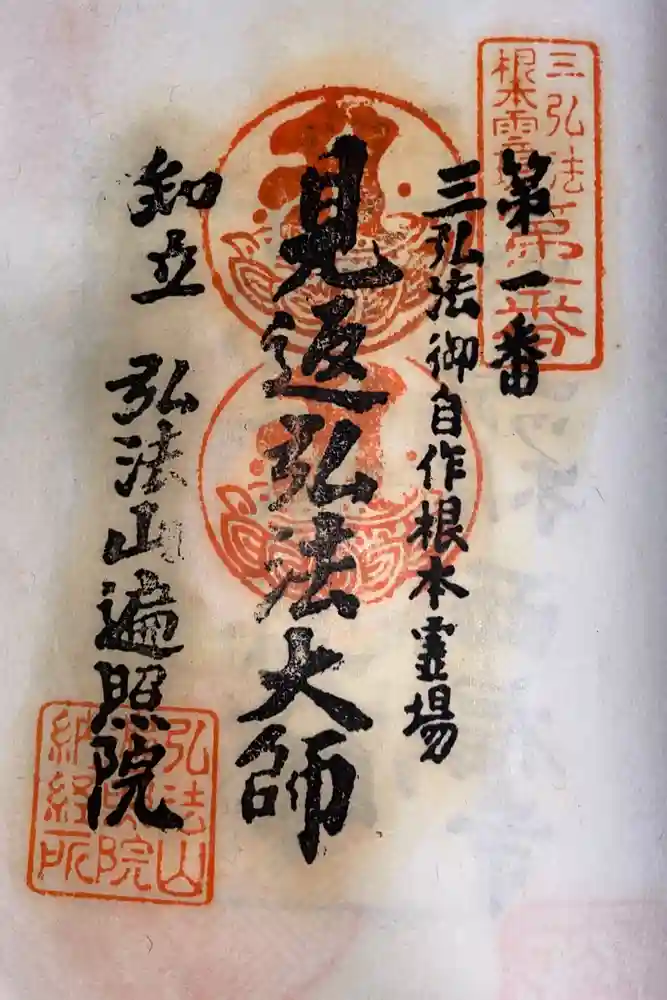 三弘法
根本霊場
第一番
第一番
三弘法御自作根本霊場
見返弘法大師
知立 弘法山遍照院
弘法山
遍照院
納経所